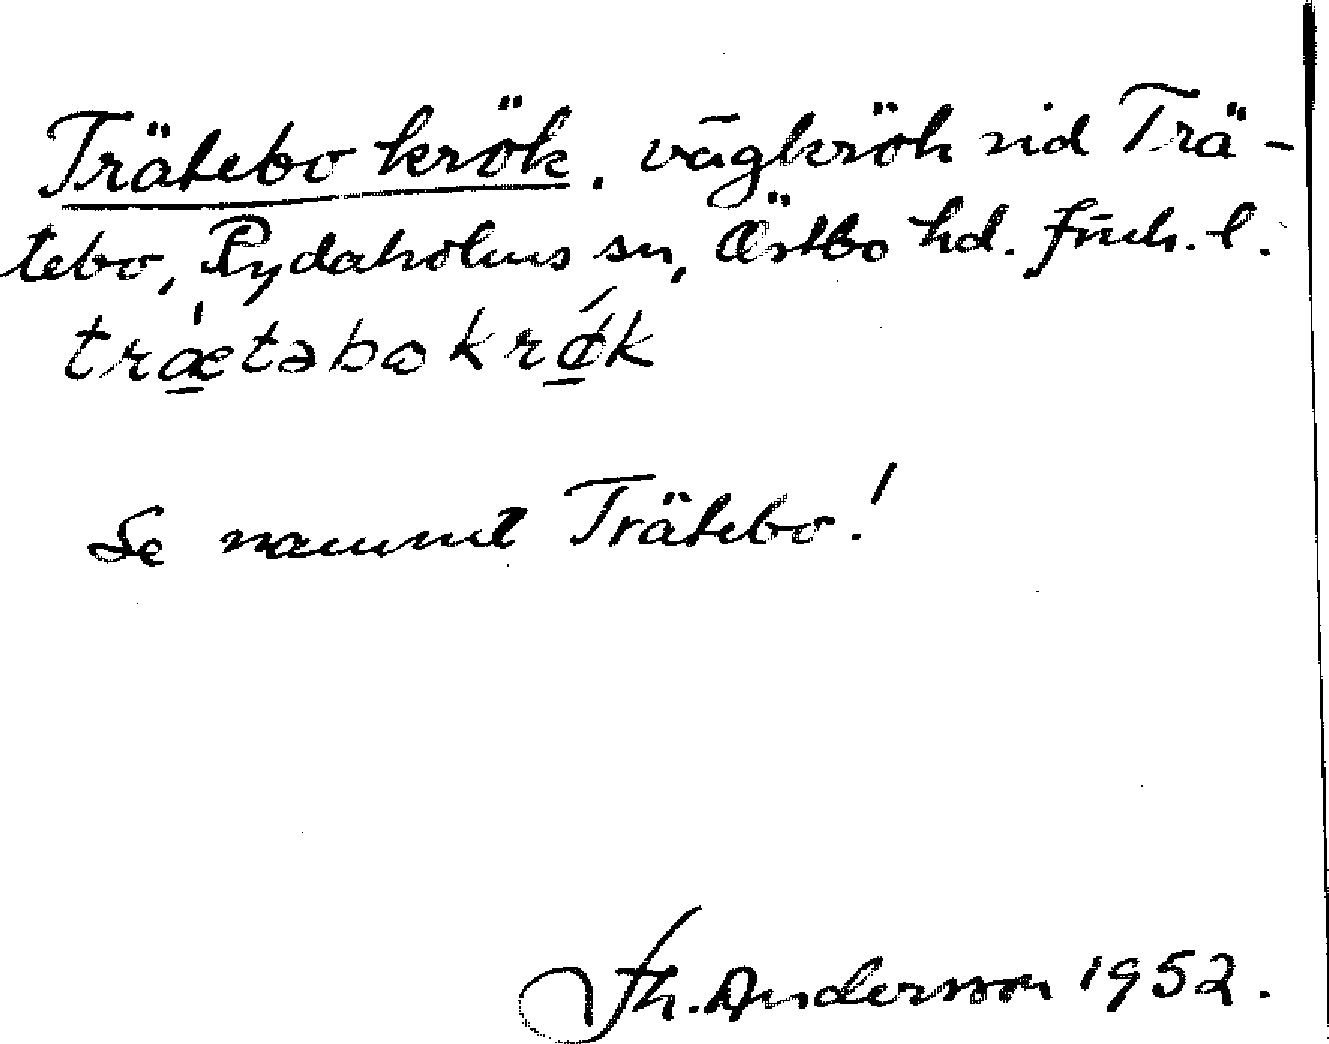 Trätebo krök. vägkrök vid Trä-
tebo, Rydaholms sn, Östbo hd. Jönk. l.
trǽtəbo krø̄́k
Se namnet Trätebo!
Th. Andersson 1952.